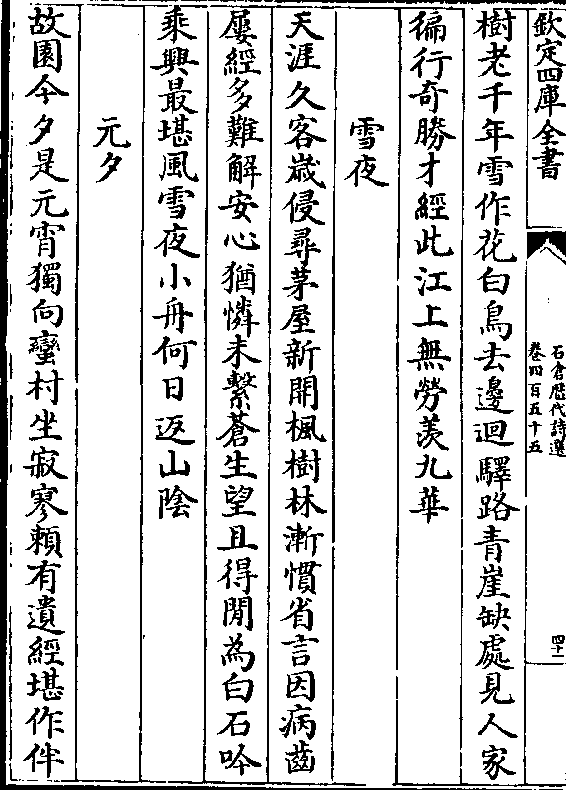 欽定四庫全書
石倉歷代詩選
卷四百五十五
四十一
樹老千年雪作花白鳥去邊迴驛路青崖缺處見人家
徧行奇勝才經此江上無勞羨九華
雪夜
天涯久客嵗侵尋茅屋新開楓樹林漸慣省言因病齒
屢經多難解安心猶憐未繫蒼生望且得閒為白石吟
乘興最堪風雪夜小舟何日返山陰
元夕
故園今夕是元宵獨向蠻村坐寂寥頼有遺經堪作伴